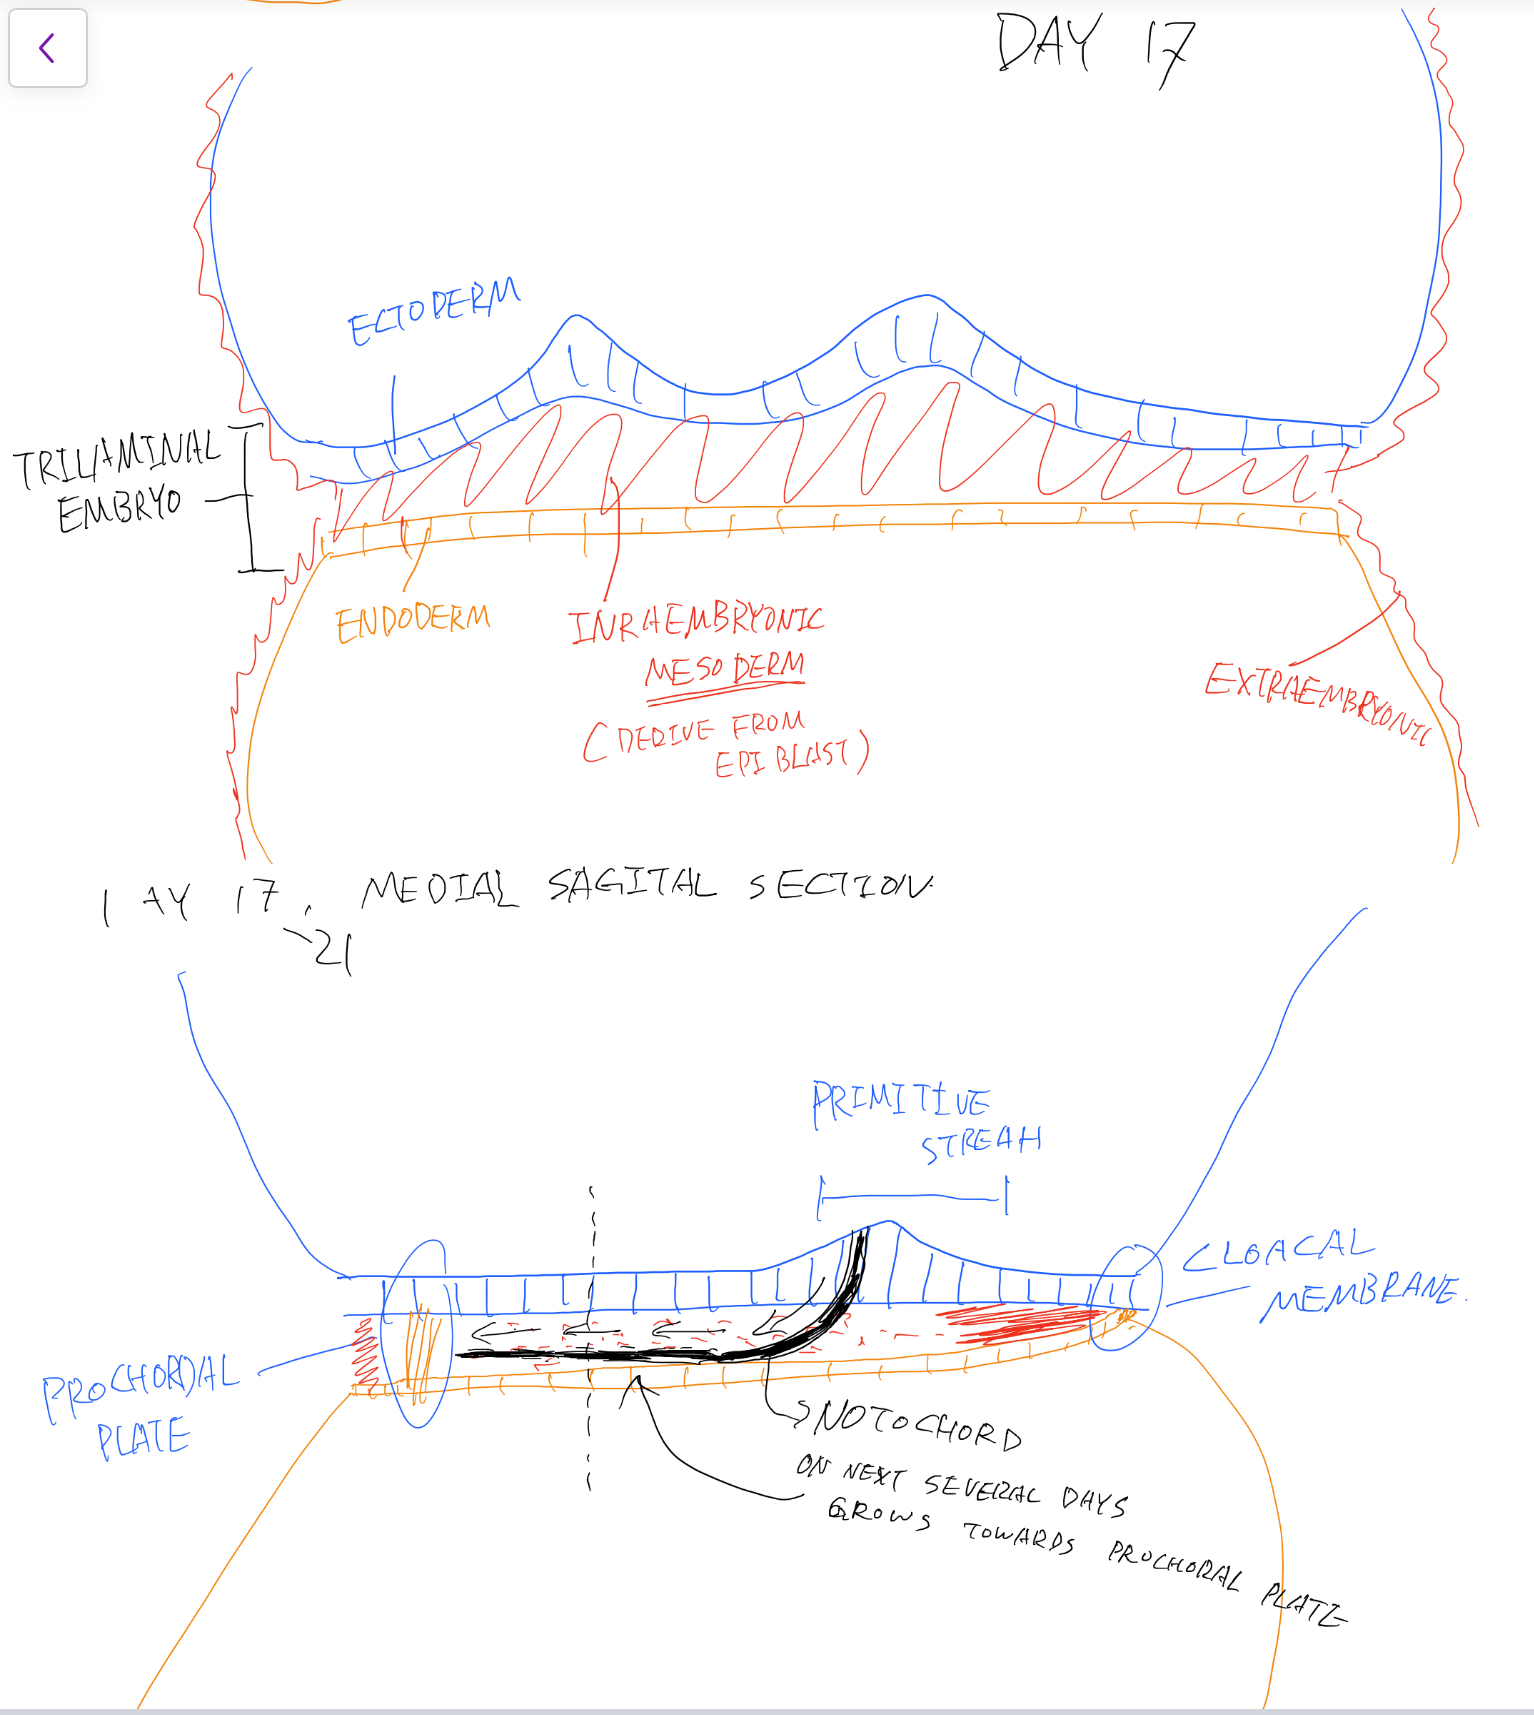 DAY 17
ECTODERM
TRILAMINAL
EMBRYO
ENDODERM
INRAEMBRYONIC
MESODERM
(DERIVE FROM
EPIBLAST)
EXTRAEMBRYONIC
AY 17, MEDIAL SAGITAL SECTION.
~21
PRIMITIVE
STREAH
CLOACAL
MEMBRANE.
PROCHORDAL
PLATE
NOTOCHORD
ON NEXT SEVERAL DAYS
GROWS TOWARDS PROCHORAL PLATE